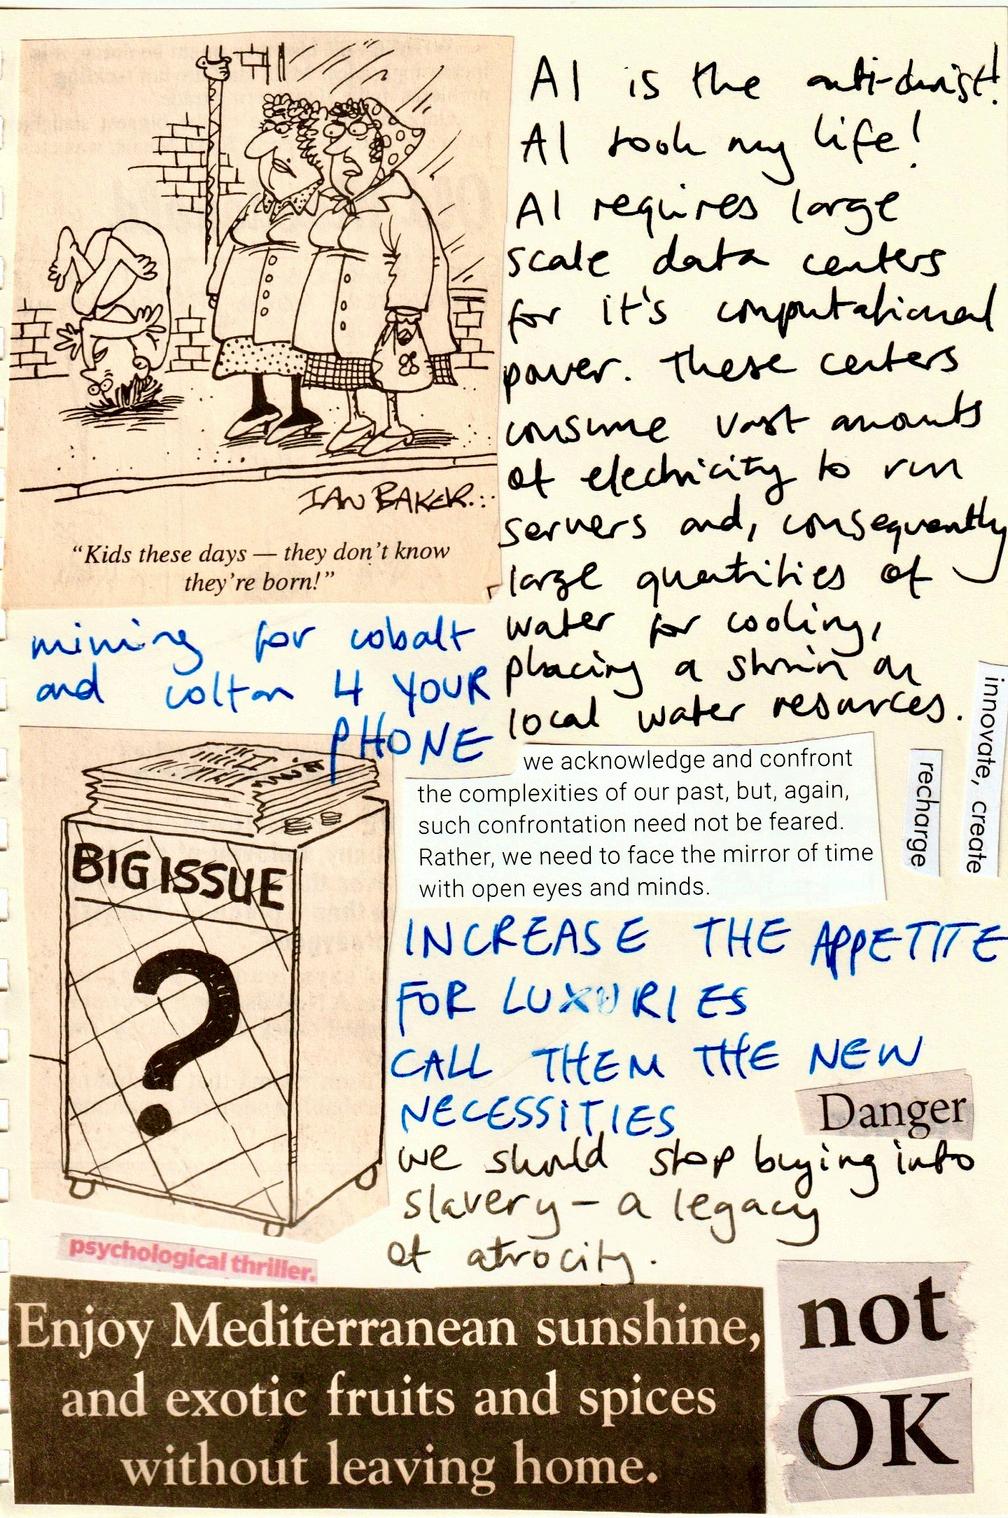 AI is the anti-christ!
AI took my life!
AI requires large
scale data centers
for it's computational
power. These centers
consume vast amounts
of electricity to run
servers and, consequently
large quantities of
water for cooling,
placing a strain on
local water resources.
IAN BAKER...
"Kids these days — they don't know
they're born!"
mining for cobalt
and coltan 4 YOUR
PHONE
innovate, create
recharge
we acknowledge and confront
the complexities of our past, but, again,
such confrontation need not be feared.
Rather, we need to face the mirror of time
with open eyes and minds.
BIG ISSUE
?
INCREASE THE APPETITE
FOR LUXURIES
CALL THEM THE NEW
NECESSITIES
Danger
we should stop buying into
slavery – a legacy
of atrocity.
psychological thriller.
Enjoy Mediterranean sunshine,
and exotic fruits and spices
without leaving home.
not
OK